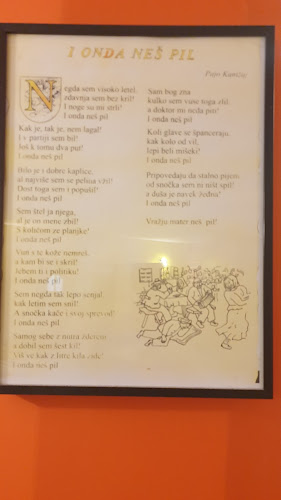 I ONDA NEŠ PIL
Pajo Kanižaj
Negda sem visoko letel,
zdavnja sem bez kril!
I noge su mi streli!
I onda neš pil
Kak je, tak je, nem lagal!
I v partiji sem bil!
Još k tomu dva put!
I onda neš pil
Bilo je i dobre kaplice,
al najviše sem se pelina
Dost toga sem i popušil!
I onda neš pil
Sem štel ja njega,
al je on mene zbil!
S količom ze planjke!
I onda neš pil
Vun s te kože nemreš,
a kam bi se i skril!
Jebem ti i politiku!
I onda neš pil
Sem negda tak lepo senjal,
kak letim sem snil!
A snočka kače i svoj sprevod!
I onda neš pil
Samog sebe z nutra zderem
a dobil sem šest kil!
Viš ve kak z hitre krila ide!
I onda neš pil
Sam bog zna
kulko sem vuse toga zlil,
a doktor mi neda pin!
I onda neš pil
Koli glave se španceraju,
kak kolo od vil,
lepi beli mišeki!
I onda neš pil
Pripovedaju da stalno pijem,
od snočka sem ni ništ spil!
a duša je navek žedna!
I onda neš pil
Vražju mater neš pil!